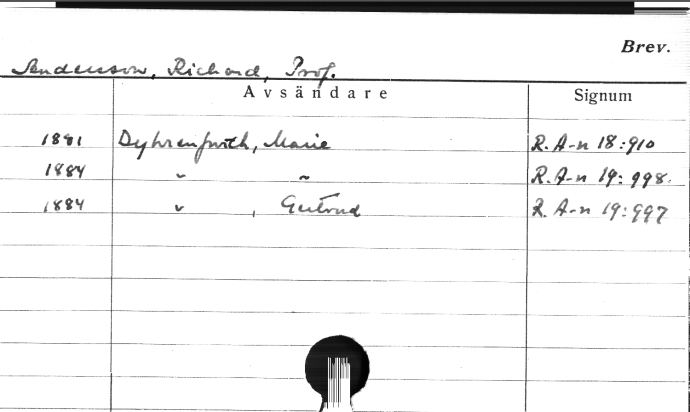 Brev.
Andersson, Richard, Prof.
Avsändare Signum
1881 Dyhrenfurth, Marie R. A-n 18:910
1884 " " R. A-n 19:998.
1884 " , Gertrud R. A-n 19:997